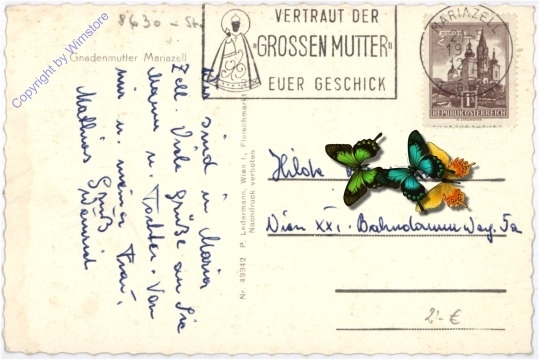 8630 - St
VERTRAUT DER
"GROSSEN MUTTER"
EUER GESCHICK
MARIAZELL
19
1 S
REPUBLIK ÖSTERREICH
Gnadenmutter Mariazell
Copyright by Wimstore
Wir sind in Maria
Zell. Viele Grüße an Sie
Mann u. Tochter. Von
mir u. meiner Frau,
Mathias Groß
Nr. 49342 P. Ledermann, Wien I., Fleischmarkt
Nachdruck verboten
Hilde
Wien XXI. Bahndammweg. 5a
2.- €